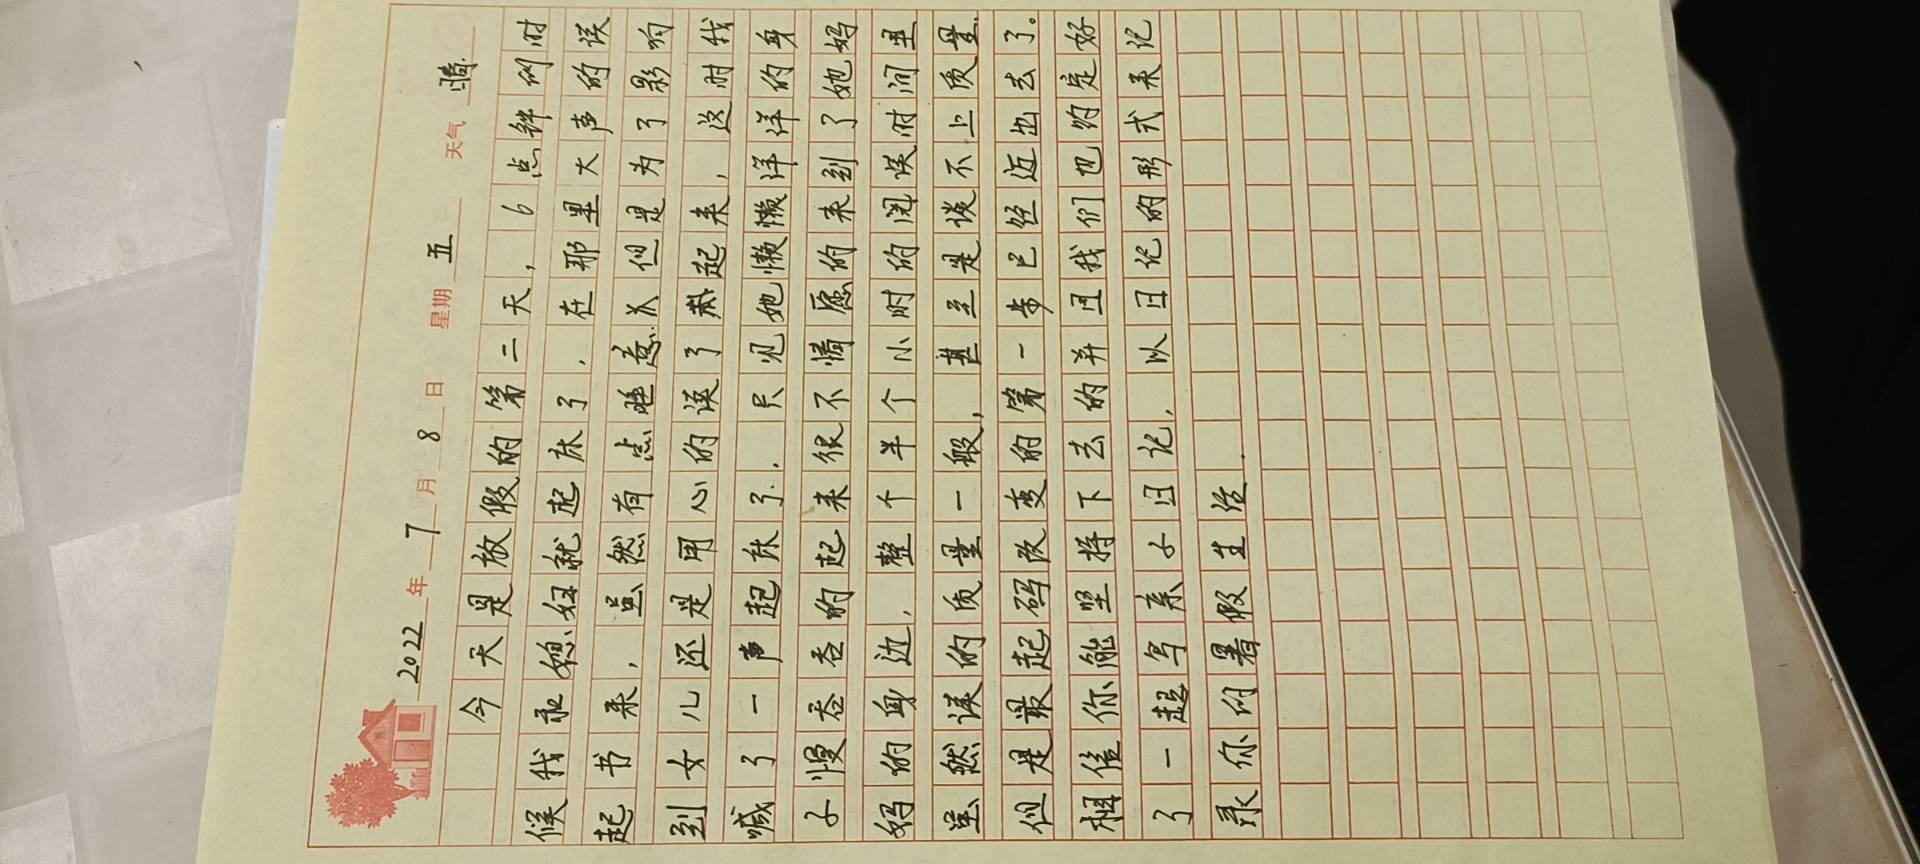 2022年7月8日 星期五 天气晴
今天是放假的第二天，6点钟的时
候我和媳妇就起床了，在那里大声的读
起书来，虽然有点睡意 但是为了影响
到女儿还是用心的读了起来，这时我
喊了一声起床了．只见她懒懒洋洋的身
子慢吞吞的起来很不情愿的来到了她妈
妈的身边，整个半个小时的阅读时间里
虽然读的质量一般，甚至是谈不上质量．
但是最起码改变的第一步已经迈出去了。
相信你能坚持下去的并且我们也约定好
了一起写亲子日记，以日记的形式来记
录你的暑假生活．